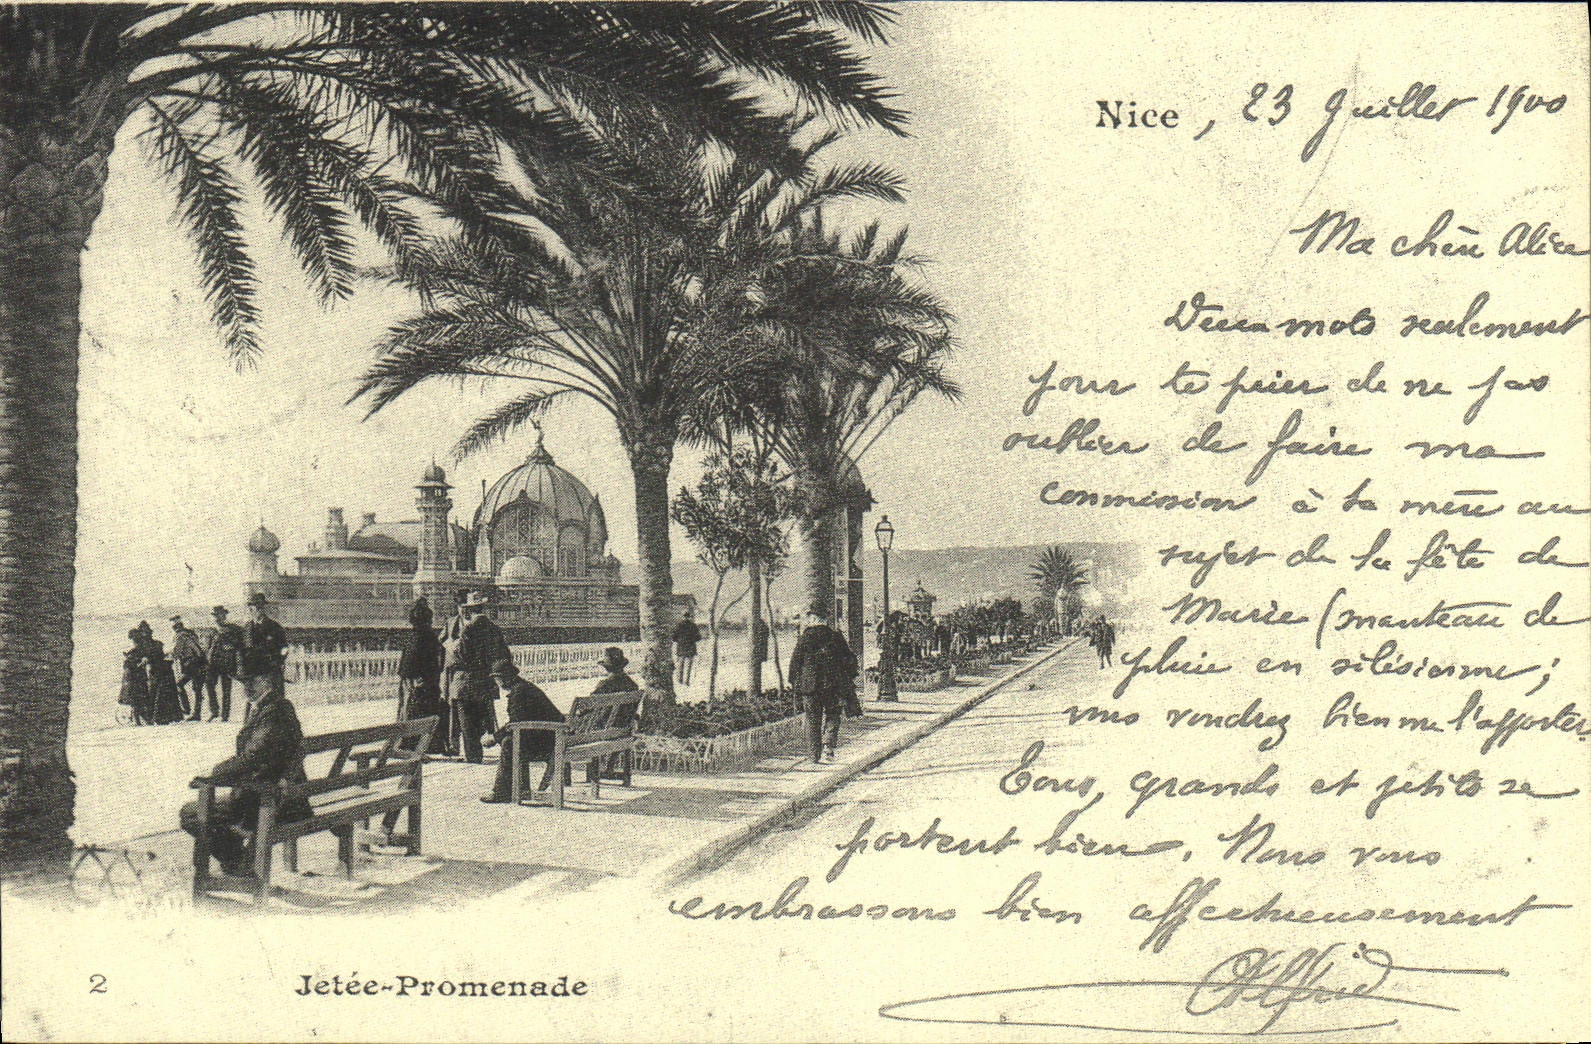 Nice, 23 Juillet 1900
Ma chère Alice
Deux mots seulement
pour te prier de ne pas
oublier de faire ma
commission à ta mère au
sujet de la fête de
Marie (manteau de
pluie en silésienne;
vous voudrez bien me l'apporter.
Tous, grands et petits se
portent bien. Nous vous
embrassons bien affectueusement
Alfred
2 Jetée-Promenade